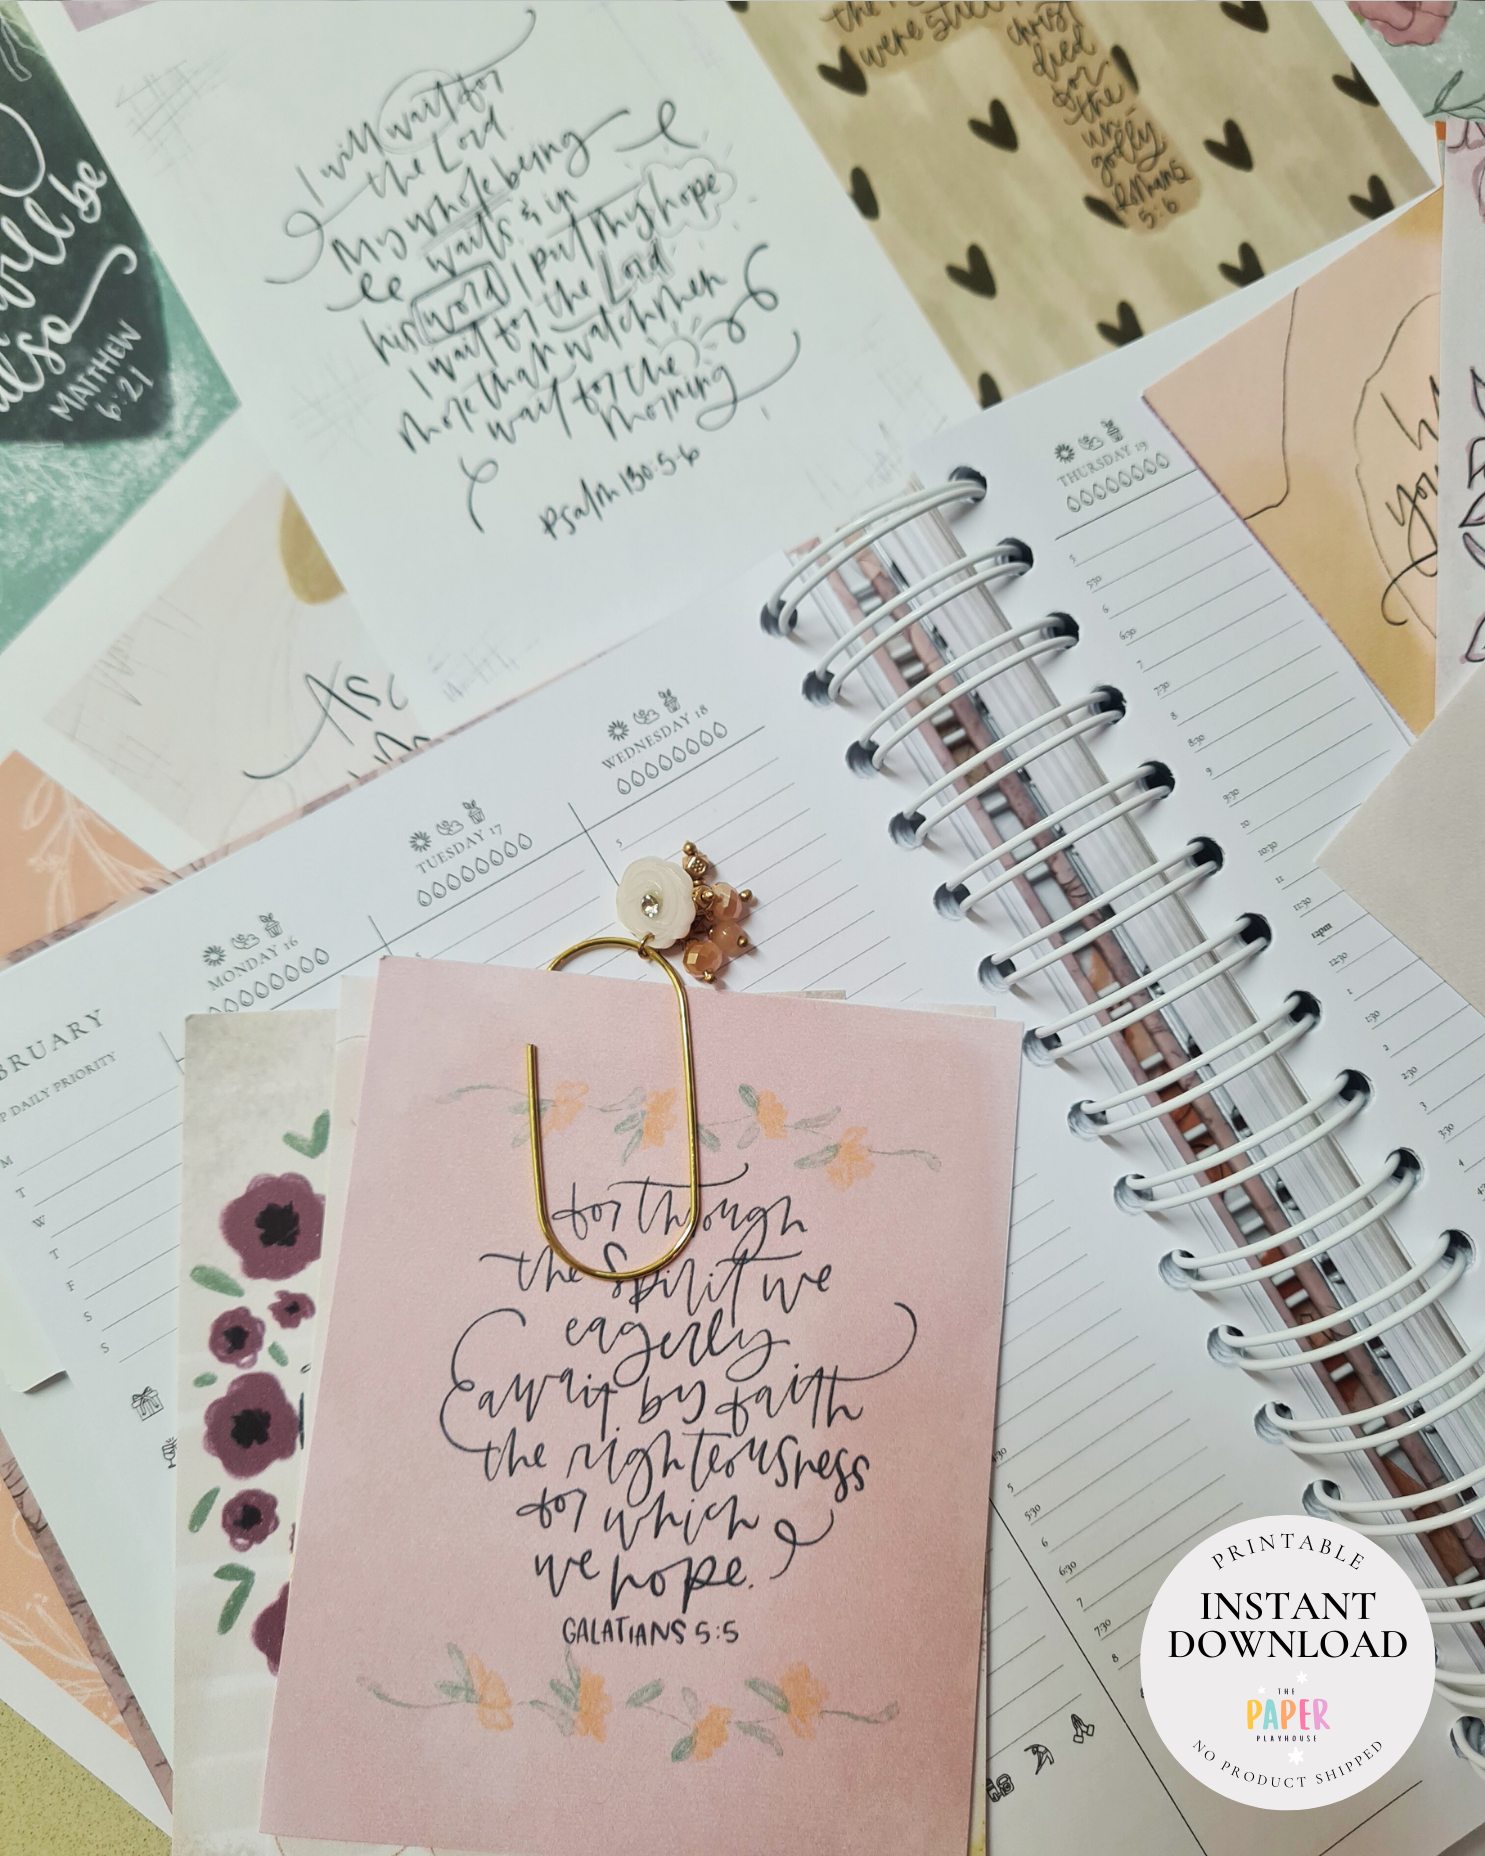 will be
also
MATTHEW
6:21
I will wait for
the Lord.
My whole being
waits & in
his word I put my hope
I wait for the Lord
more than watchmen
wait for the
morning
Psalm 130:5-6
the
were still
christ
died
for
the
un-
godly
Romans
5:6
THURSDAY 19
5
5:30
6
6:30
7
7:30
8
8:30
9
9:30
10
10:30
11
11:30
12pm
12:30
1
1:30
2
2:30
3
3:30
4
WEDNESDAY 18
5
TUESDAY 17
MONDAY 16
BRUARY
P DAILY PRIORITY
M
T
W
T
F
S
S
for through
the Spirit we
eagerly
await by faith
the righteousness
for which
we hope.
GALATIANS 5:5
5
5:30
6
6:30
7
7:30
8
PRINTABLE
INSTANT
DOWNLOAD
THE
PAPER
PLAYHOUSE
NO PRODUCT SHIPPED